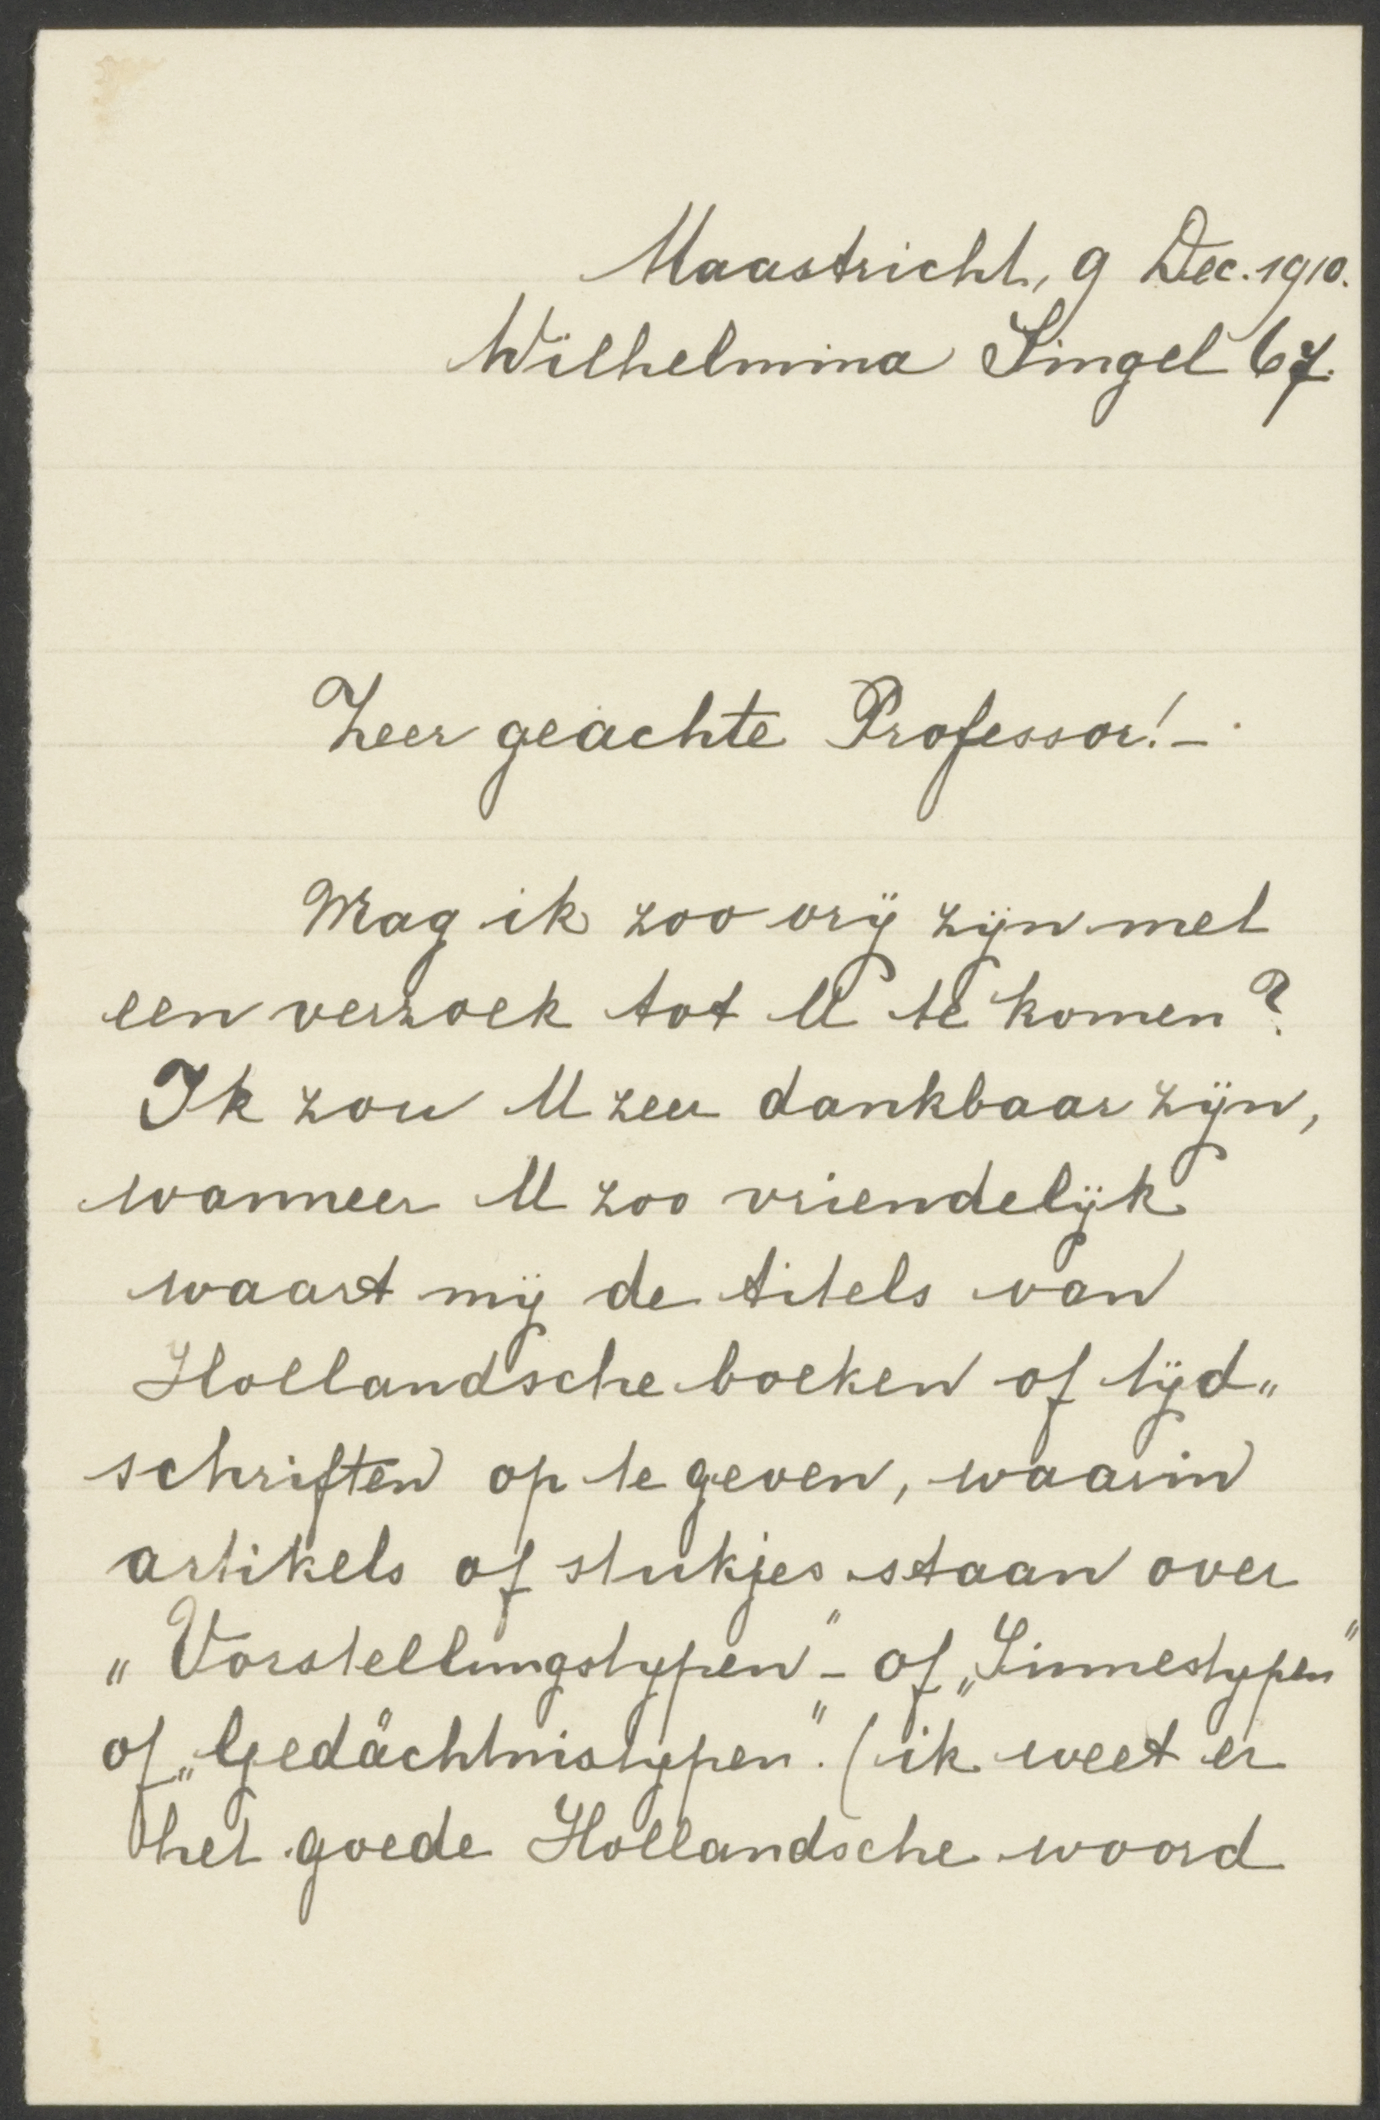 Maastricht, 9 Dec. 1910.
Wilhelmina Singel 67.
Zeer geachte Professor! -
Mag ik zoo vrij zijn met
een verzoek tot U te komen?
Ik zou U zeer dankbaar zijn,
wanneer U zoo vriendelijk
waart mij de titels van
Hollandsche boeken of tijd„
schriften op te geven, waarin
artikels of stukjes staan over
„Vorstellungstypen" - of „Sinnestypen"
of „Gedächtnistypen". (ik weet er
het goede Hollandsche woord